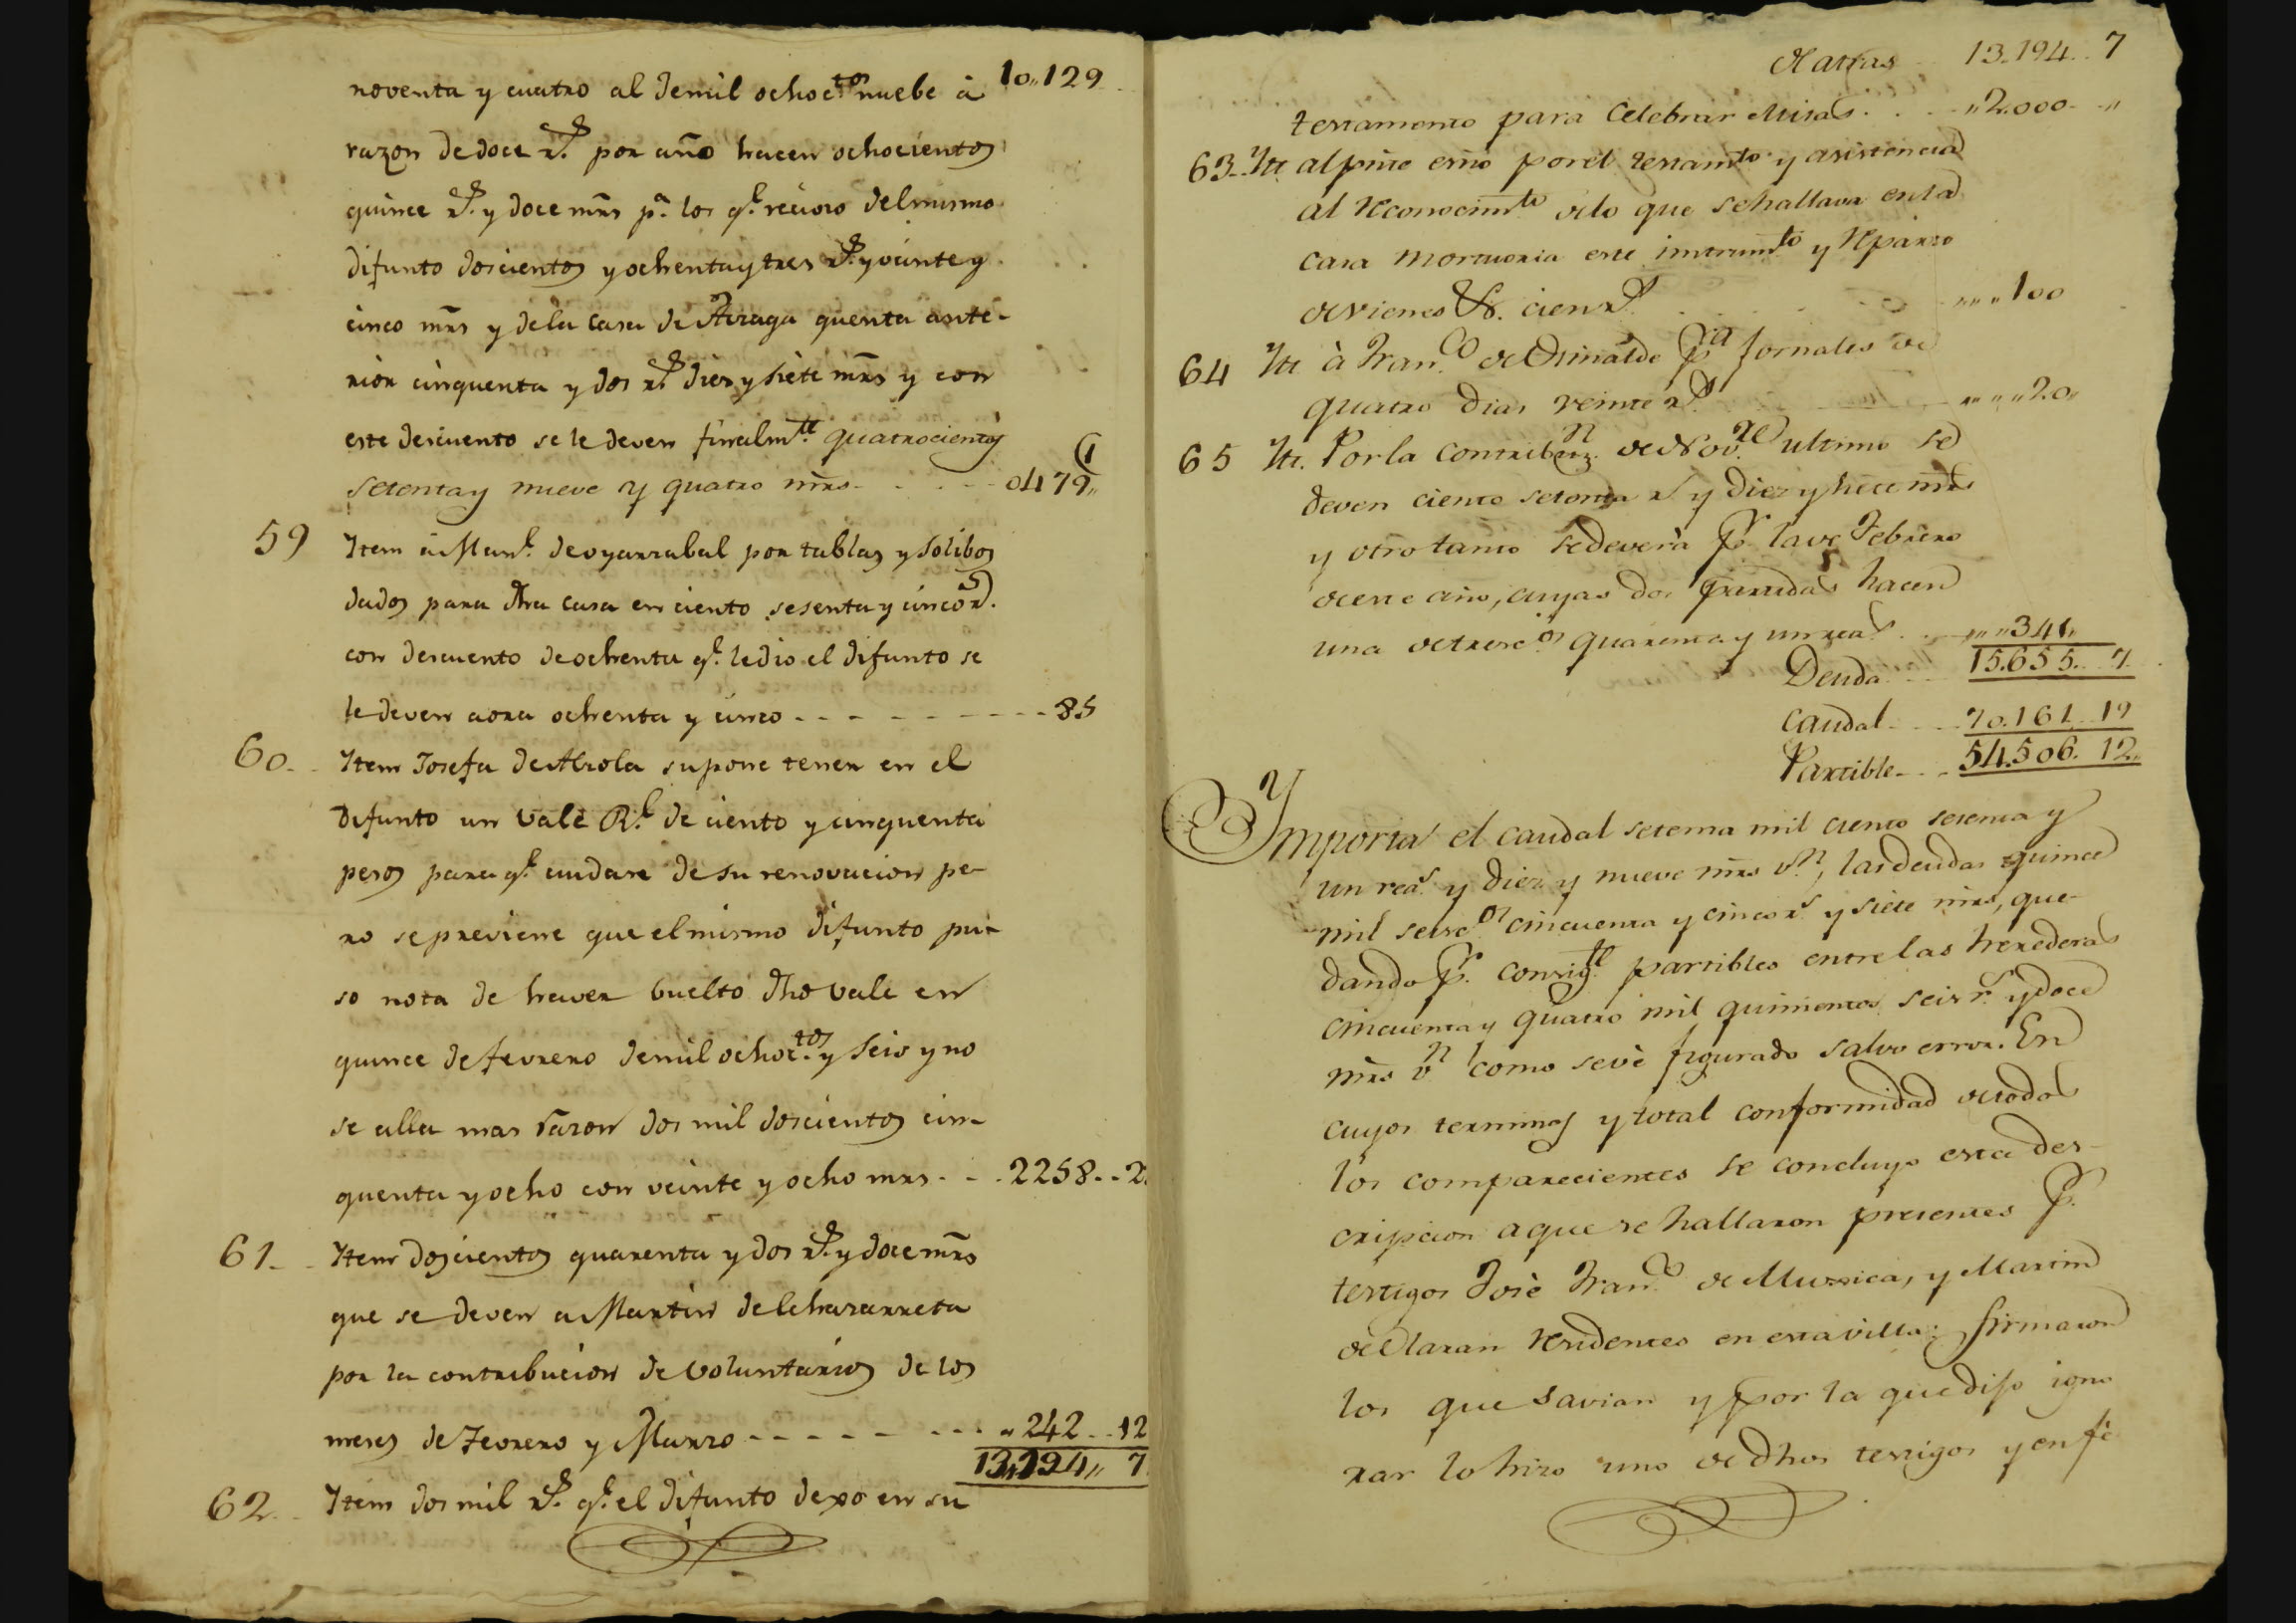 noventa y cuatro al demil ochoc.tos nuebe à 10,,129
razon de doce r.s por año hacen ochocientos
quince r.s y doce mrs p.a los q.e recivio del mismo
difunto doscientos y ochenta y tres r.s y veinte y
cinco mrs y dela casa de Arraga quenta ante-
rior cinquenta y dos r.s diez y siete mrs y con
este descuento se le deven finalm.te quatrocientos
setenta y nueve y quatro mrs - - - - 0479,,
59 Item à Man.l de oyarzabal por tablas y solibos
dados para dha casa en ciento sesenta y cinco r.s
con descuento de ochenta q.e ledio el difunto se
le deven aora ochenta y cinco - - - - - - - - 85
60. Item Josefa de Arola supone tener en el
Difunto un Vale R.l de ciento y cinquenta
pesos para q.e cuidare de su renovacion pe-
ro se previene que el mismo difunto pu-
so nota de haver buelto dho vale en
quince de fevrero demil ochoc.tos y seis y no
se alla mas razon dos mil doscientos cin-
quenta y ocho con veinte y ocho mrs - - 2258 - - 2
61. Item doscientos quarenta y dos r.s y doce mrs
que se deven a Martin de Echazarreta
por la contribucion de Voluntarios de los
meses de Fevrero y Marzo - - - - - - - - 242 - - 12
13,,194,, 7
62. Item dos mil r.s q.e el difunto dexo en su
De atras 13.194.. 7
testamento para Celebrar Misas. . . . ,,2.000- ,,
63. It. al pnte esno por el testam.to y asistencia
al reconocim.to de lo que se hallava en la
casa mortuoria este instrum.to y reparto
de vienes &. cien r.s . . . . ,,,,100
64 It. à Fran.co de Orinalde p.ra jornales de
quatro dias veinte r.s ,,,,20,,
65 It. Por la contribuz.n de Nov.re ultimo se
deven ciento setenta r.s y diez y siete mrs
y otro tanto se deverà p.r la de Febrero
de este año, cuyas dos partidas hacen
una de tresc.os quarenta y un rea.s . . ,,,,341,,
Deuda . . . 15.655.. 7.
Caudal . . . 70.161.. 19
Partible . . . 54.506. 12,,
Ymporta el caudal setenta mil ciento sesenta y
un rea.s y diez y nueve mrs v.n, las deudas quince
mil seisc.os cincuenta y cinco r.s y siete mrs, que-
dando p.r consig.te partibles entre las herederas
cincuenta y quatro mil quinientos seis r.s y doce
mrs v.n como se vè figurado salvo error. En
cuyos terminos y total conformidad de todos
los comparecientes se concluyo esta des-
cripcion a que se hallaron presentes p.r
testigos Josè Fran.co de Muxica, y Martin
de Olaran residentes en esta villa: firmaron
los que savian y por la que dijo igno
rar lo hizo uno de dhos testigos y en fe